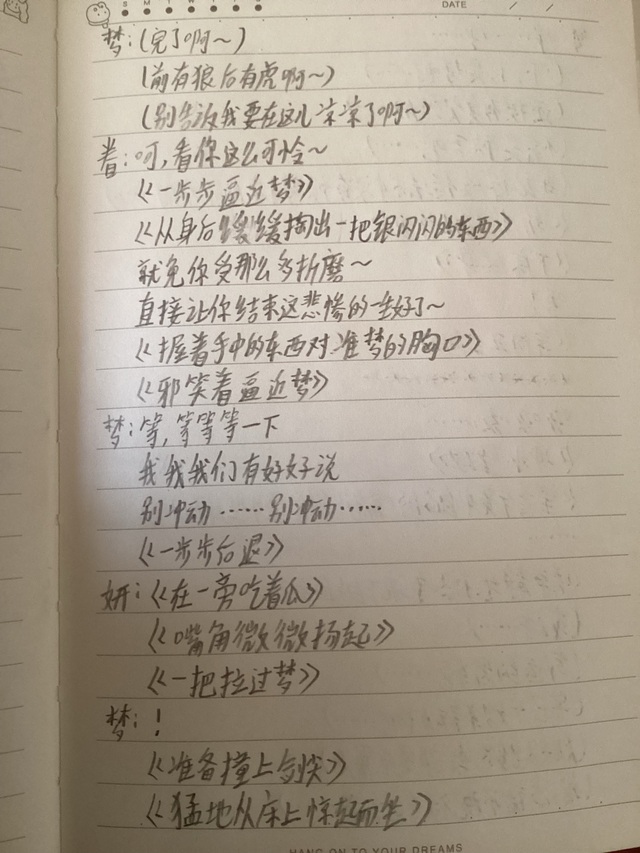 S M T W T F S
DATE / /
梦：(完了啊～)
(前有狼后有虎啊～)
(别告诉我要在这儿凉凉了啊～)
眷：呵，看你这么可怜～
《一步步逼近梦》
《从身后缓缓掏出一把银闪闪的东西》
就免你受那么多折磨～
直接让你结束这悲惨的一生好了～
《握着手中的东西对准梦的胸口》
《邪笑着逼近梦》
梦：等，等等等一下
我我我们有好好说
别冲动……别冲动……
《一步步后退》
妍：《在一旁吃着瓜》
《嘴角微微扬起》
《一把拉过梦》
梦：！
《准备撞上剑尖》
《猛地从床上惊起而坐》
HANG ON TO YOUR DREAMS